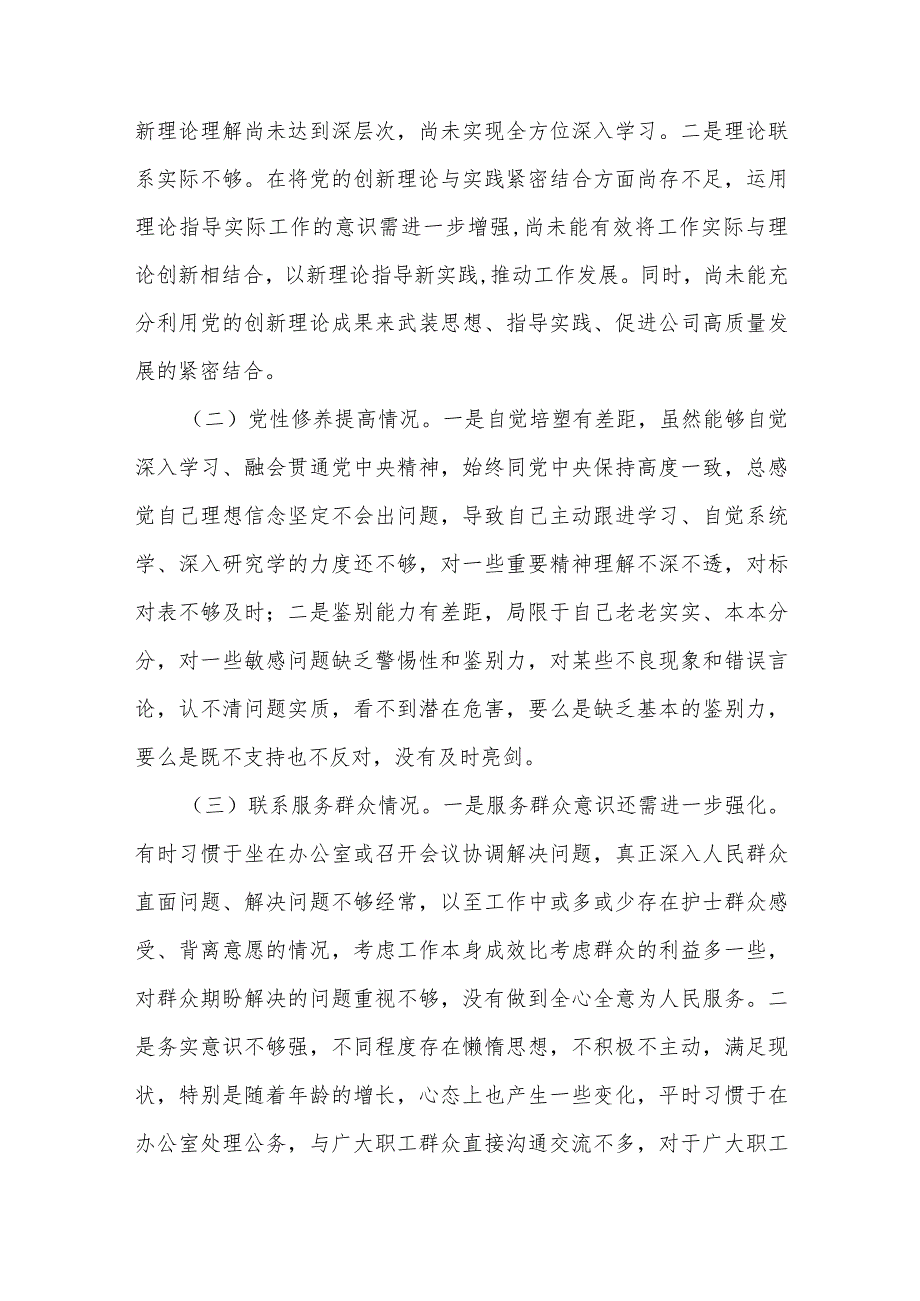 新理论理解尚未达到深层次，尚未实现全方位深入学习。二是理论联
系实际不够。在将党的创新理论与实践紧密结合方面尚存不足，运用
理论指导实际工作的意识需进一步增强,尚未能有效将工作实际与理
论创新相结合，以新理论指导新实践,推动工作发展。同时，尚未能充
分利用党的创新理论成果来武装思想、指导实践、促进公司高质量发
展的紧密结合。
（二）党性修养提高情况。一是自觉培塑有差距，虽然能够自觉
深入学习、融会贯通党中央精神，始终同党中央保持高度一致，总感
觉自己理想信念坚定不会出问题，导致自己主动跟进学习、自觉系统
学、深入研究学的力度还不够，对一些重要精神理解不深不透，对标
对表不够及时；二是鉴别能力有差距，局限于自己老老实实、本本分
分，对一些敏感问题缺乏警惕性和鉴别力，对某些不良现象和错误言
论，认不清问题实质，看不到潜在危害，要么是缺乏基本的鉴别力，
要么是既不支持也不反对，没有及时亮剑。
（三）联系服务群众情况。一是服务群众意识还需进一步强化。
有时习惯于坐在办公室或召开会议协调解决问题，真正深入人民群众
直面问题、解决问题不够经常，以至工作中或多或少存在护士群众感
受、背离意愿的情况，考虑工作本身成效比考虑群众的利益多一些，
对群众期盼解决的问题重视不够，没有做到全心全意为人民服务。二
是务实意识不够强，不同程度存在懒惰思想，不积极不主动，满足现
状，特别是随着年龄的增长，心态上也产生一些变化，平时习惯于在
办公室处理公务，与广大职工群众直接沟通交流不多，对于广大职工